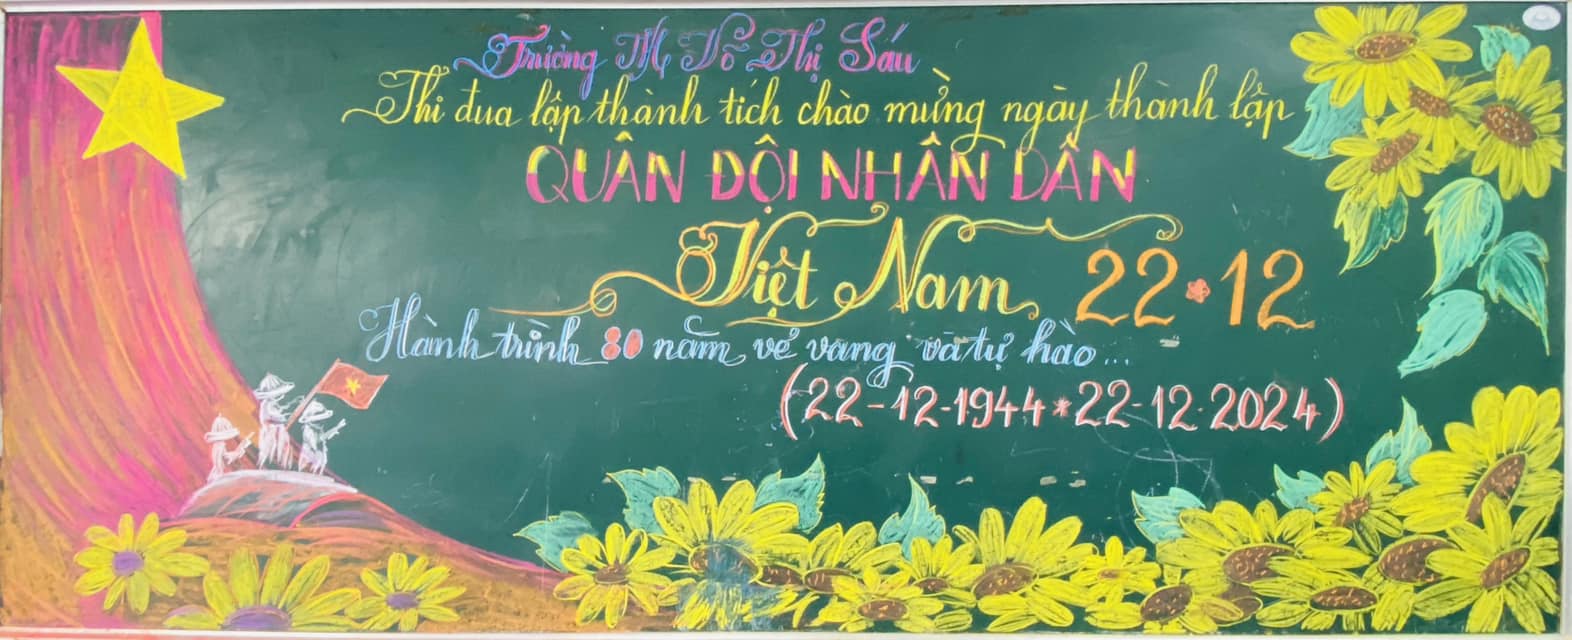 Trường TH Võ Thị Sáu
Thi đua lập thành tích chào mừng ngày thành lập
QUÂN ĐỘI NHÂN DÂN
Việt Nam 22*12
Hành trình 80 năm vẻ vang và tự hào...
(22-12-1944*22-12-2024)